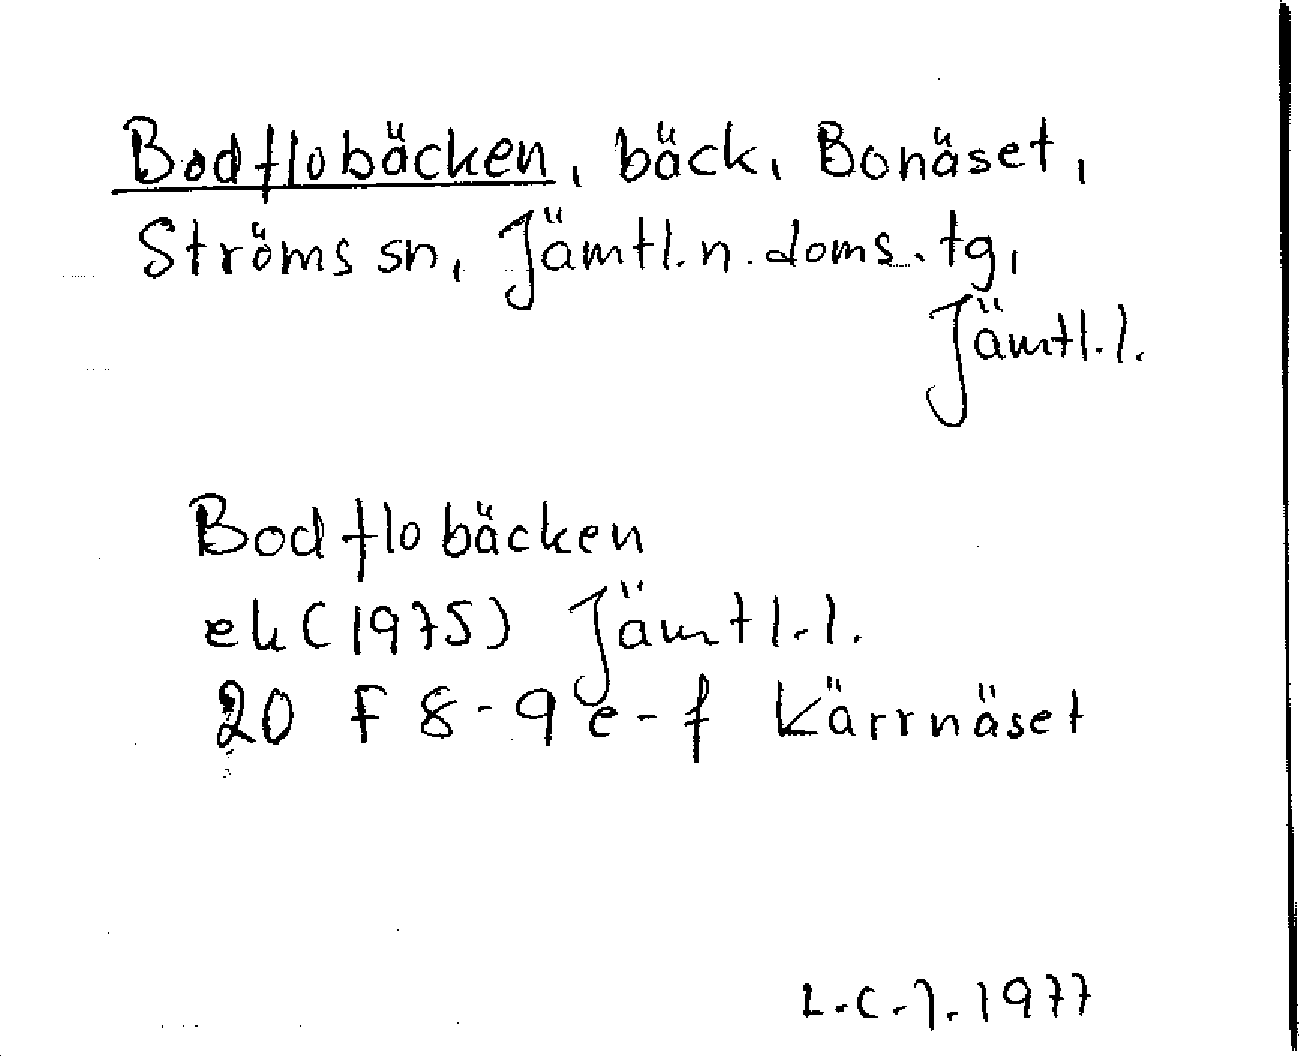 Bodflobäcken, bäck, Bonäset,
Ströms sn, Jämtl. n. doms. tg,
Jämtl. l.
Bodflobäcken
ek (1975) Jämtl. l.
20 F 8-9 e-f Kärrnäset
L.C.J. 1977